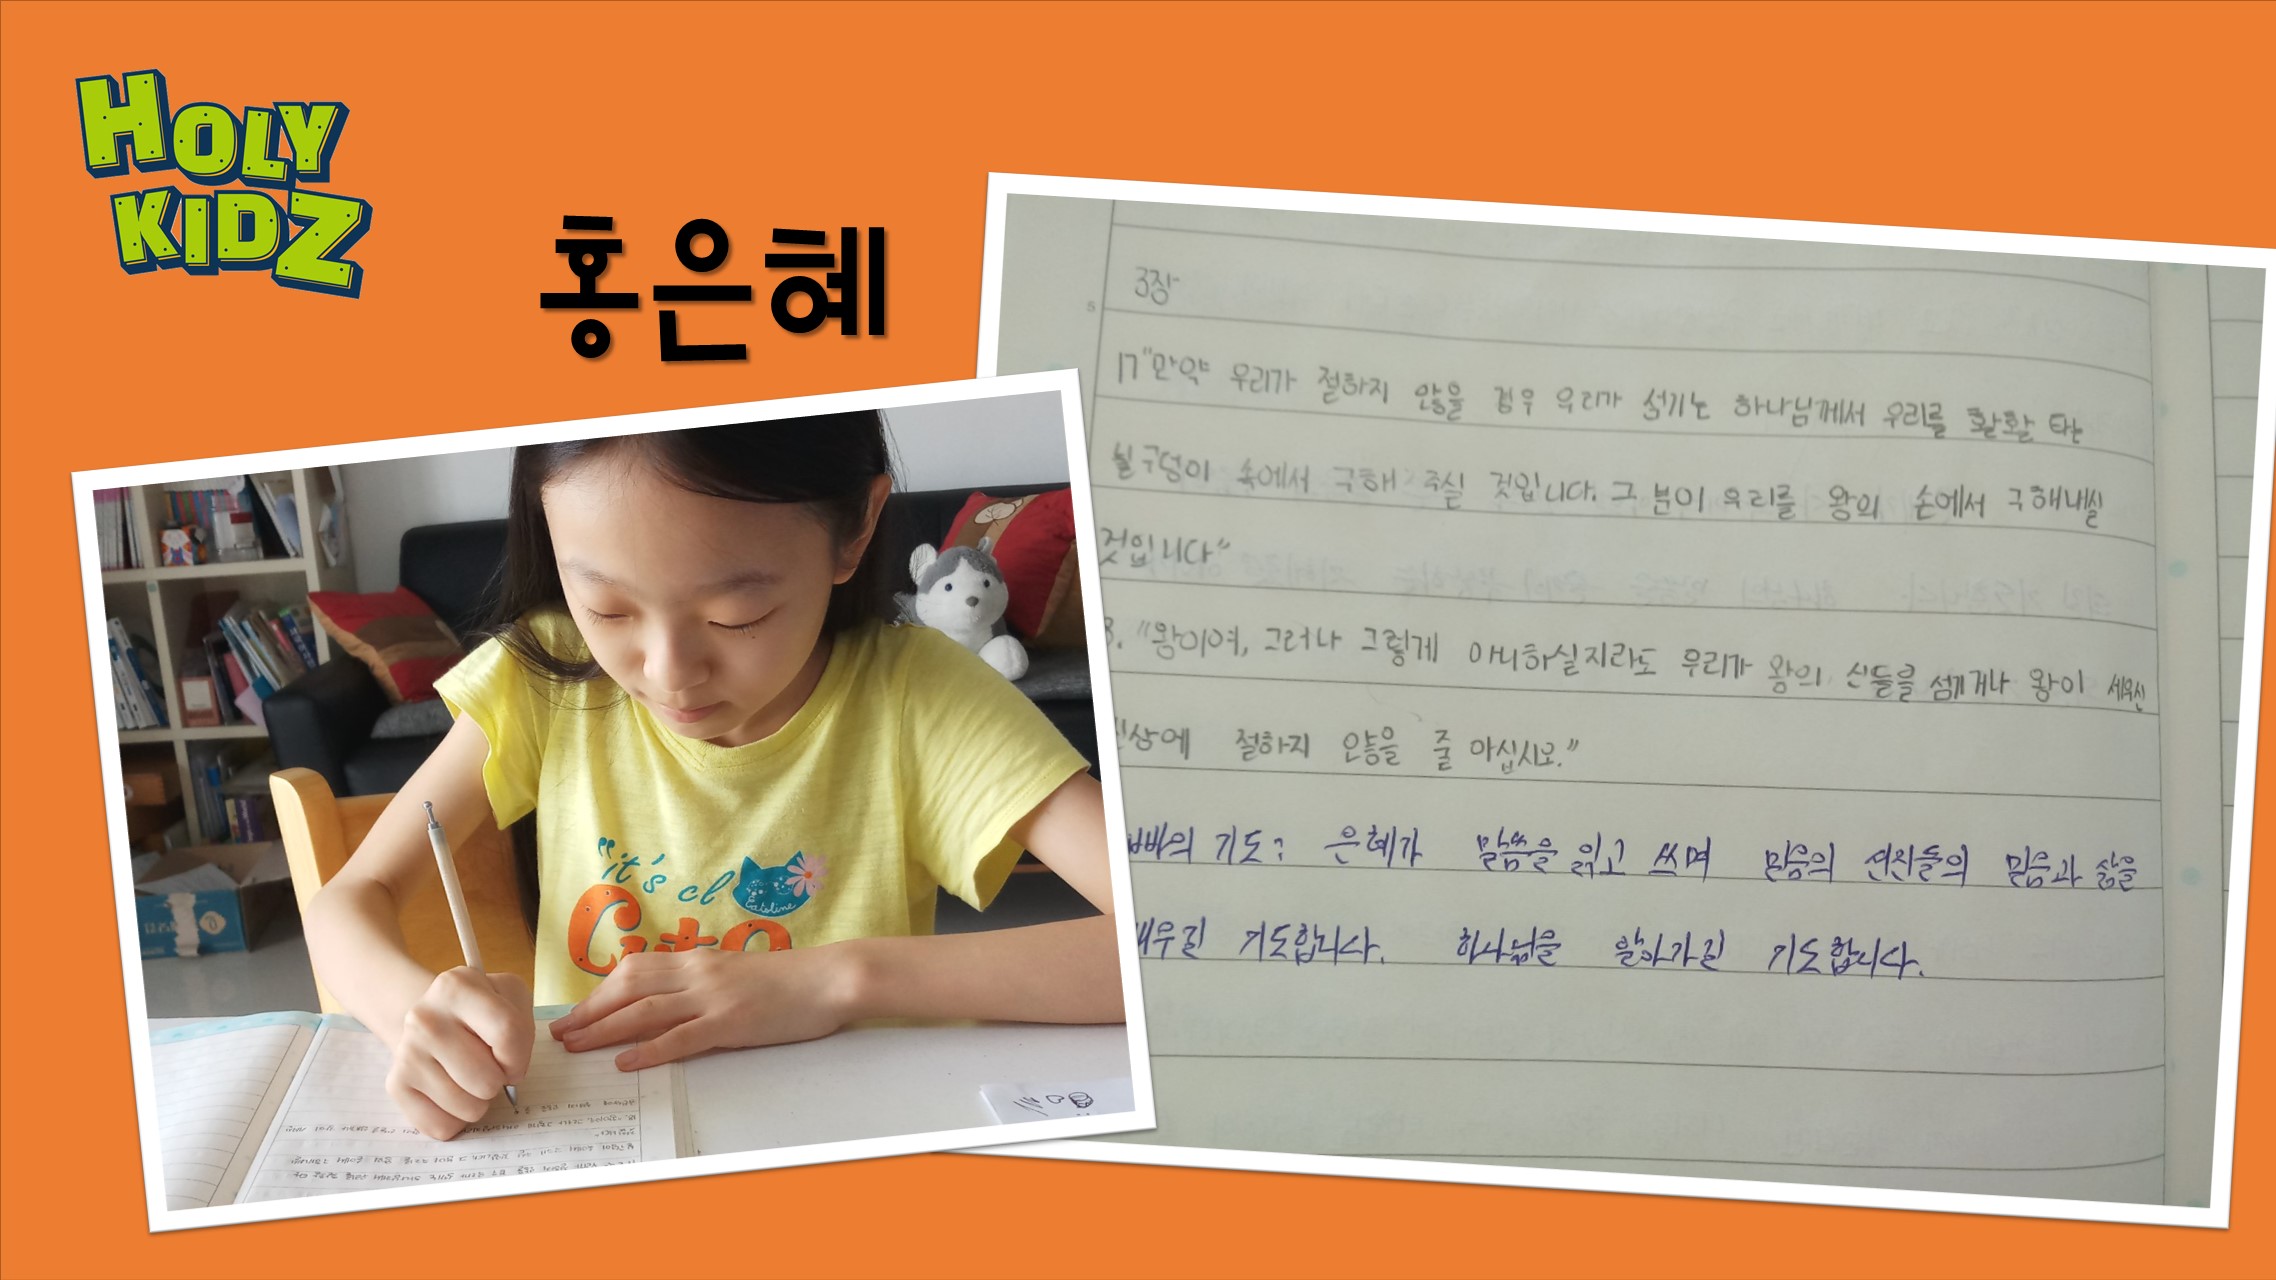 HOLY
KIDZ
홍은혜
"it's cl
Eatoline
Cute
3장
17 "만약 우리가 절하지 않을 경우 우리가 섬기는 하나님께서 우리를 활활 타는
불구덩이 속에서 구해 주실 것입니다. 그 분이 우리를 왕의 손에서 구해내실
것입니다"
8. "왕이여, 그러나 그렇게 아니하실지라도 우리가 왕의 신들을 섬기거나 왕이 세우신
신상에 절하지 않을 줄 아십시오."
빠의 기도: 은혜가 말씀을 읽고 쓰며 믿음의 선진들의 믿음과 삶을
배우길 기도합니다. 하나님을 알아가길 기도합니다.